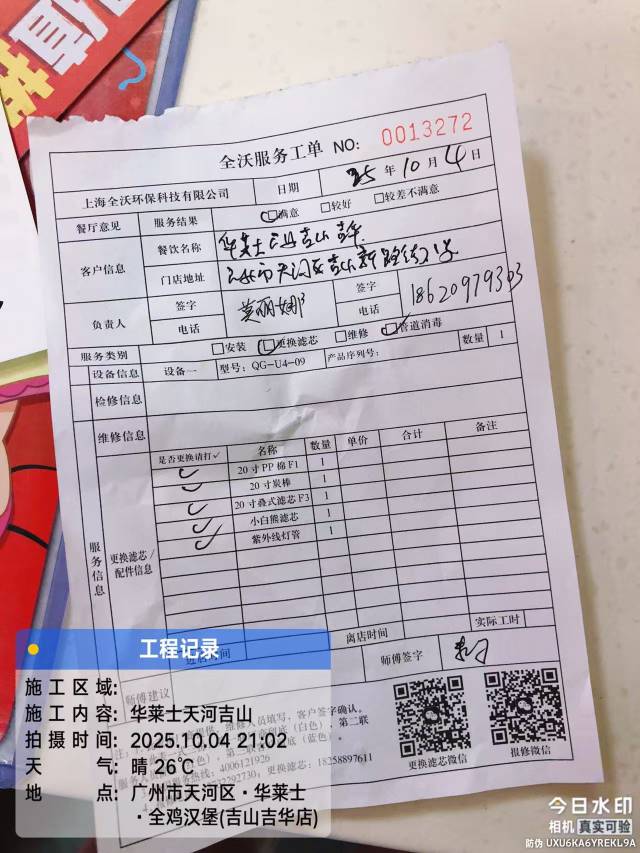 值
全沃服务工单 NO: 0013272
上海全沃环保科技有限公司 日期 25 年 10 月 4 日
餐厅意见 服务结果 ☑满意 □较好 □较差不满意
客户信息 餐饮名称 华莱士天河吉山吉华
门店地址 广州市天河区吉山新路街
负责人 签字 莫丽娜 签字
电话 电话 18620979303
服务类别 □安装 ☑更换滤芯 □维修 ☑管道消毒
设备信息 设备一 型号: QG-U4-09 产品序列号: 数量 1
检修信息
维修信息
服务信息 更换滤芯/配件信息
是否更换请打✓ 名称 数量 单价 合计 备注
✓ 20寸PP棉F1 1
✓ 20寸炭棒 1
✓ 20寸叠式滤芯F3 1
✓ 小白熊滤芯 1
✓ 紫外线灯管 1
进店时间 离店时间 实际工时
师傅建议 师傅签字
维修人员填写，客户签字确认。
（白色），第二联
（蓝色）。
热线: 4006121926
更换滤芯: 18258897611
更换滤芯微信 报修微信
工程记录
施工区域:
施工内容: 华莱士天河吉山
拍摄时间: 2025.10.04 21:02
天气: 晴 26℃
地点: 广州市天河区·华莱士
·全鸡汉堡(吉山吉华店)
今日水印
相机 真实可验
防伪 UXU6KA6YREKL9A